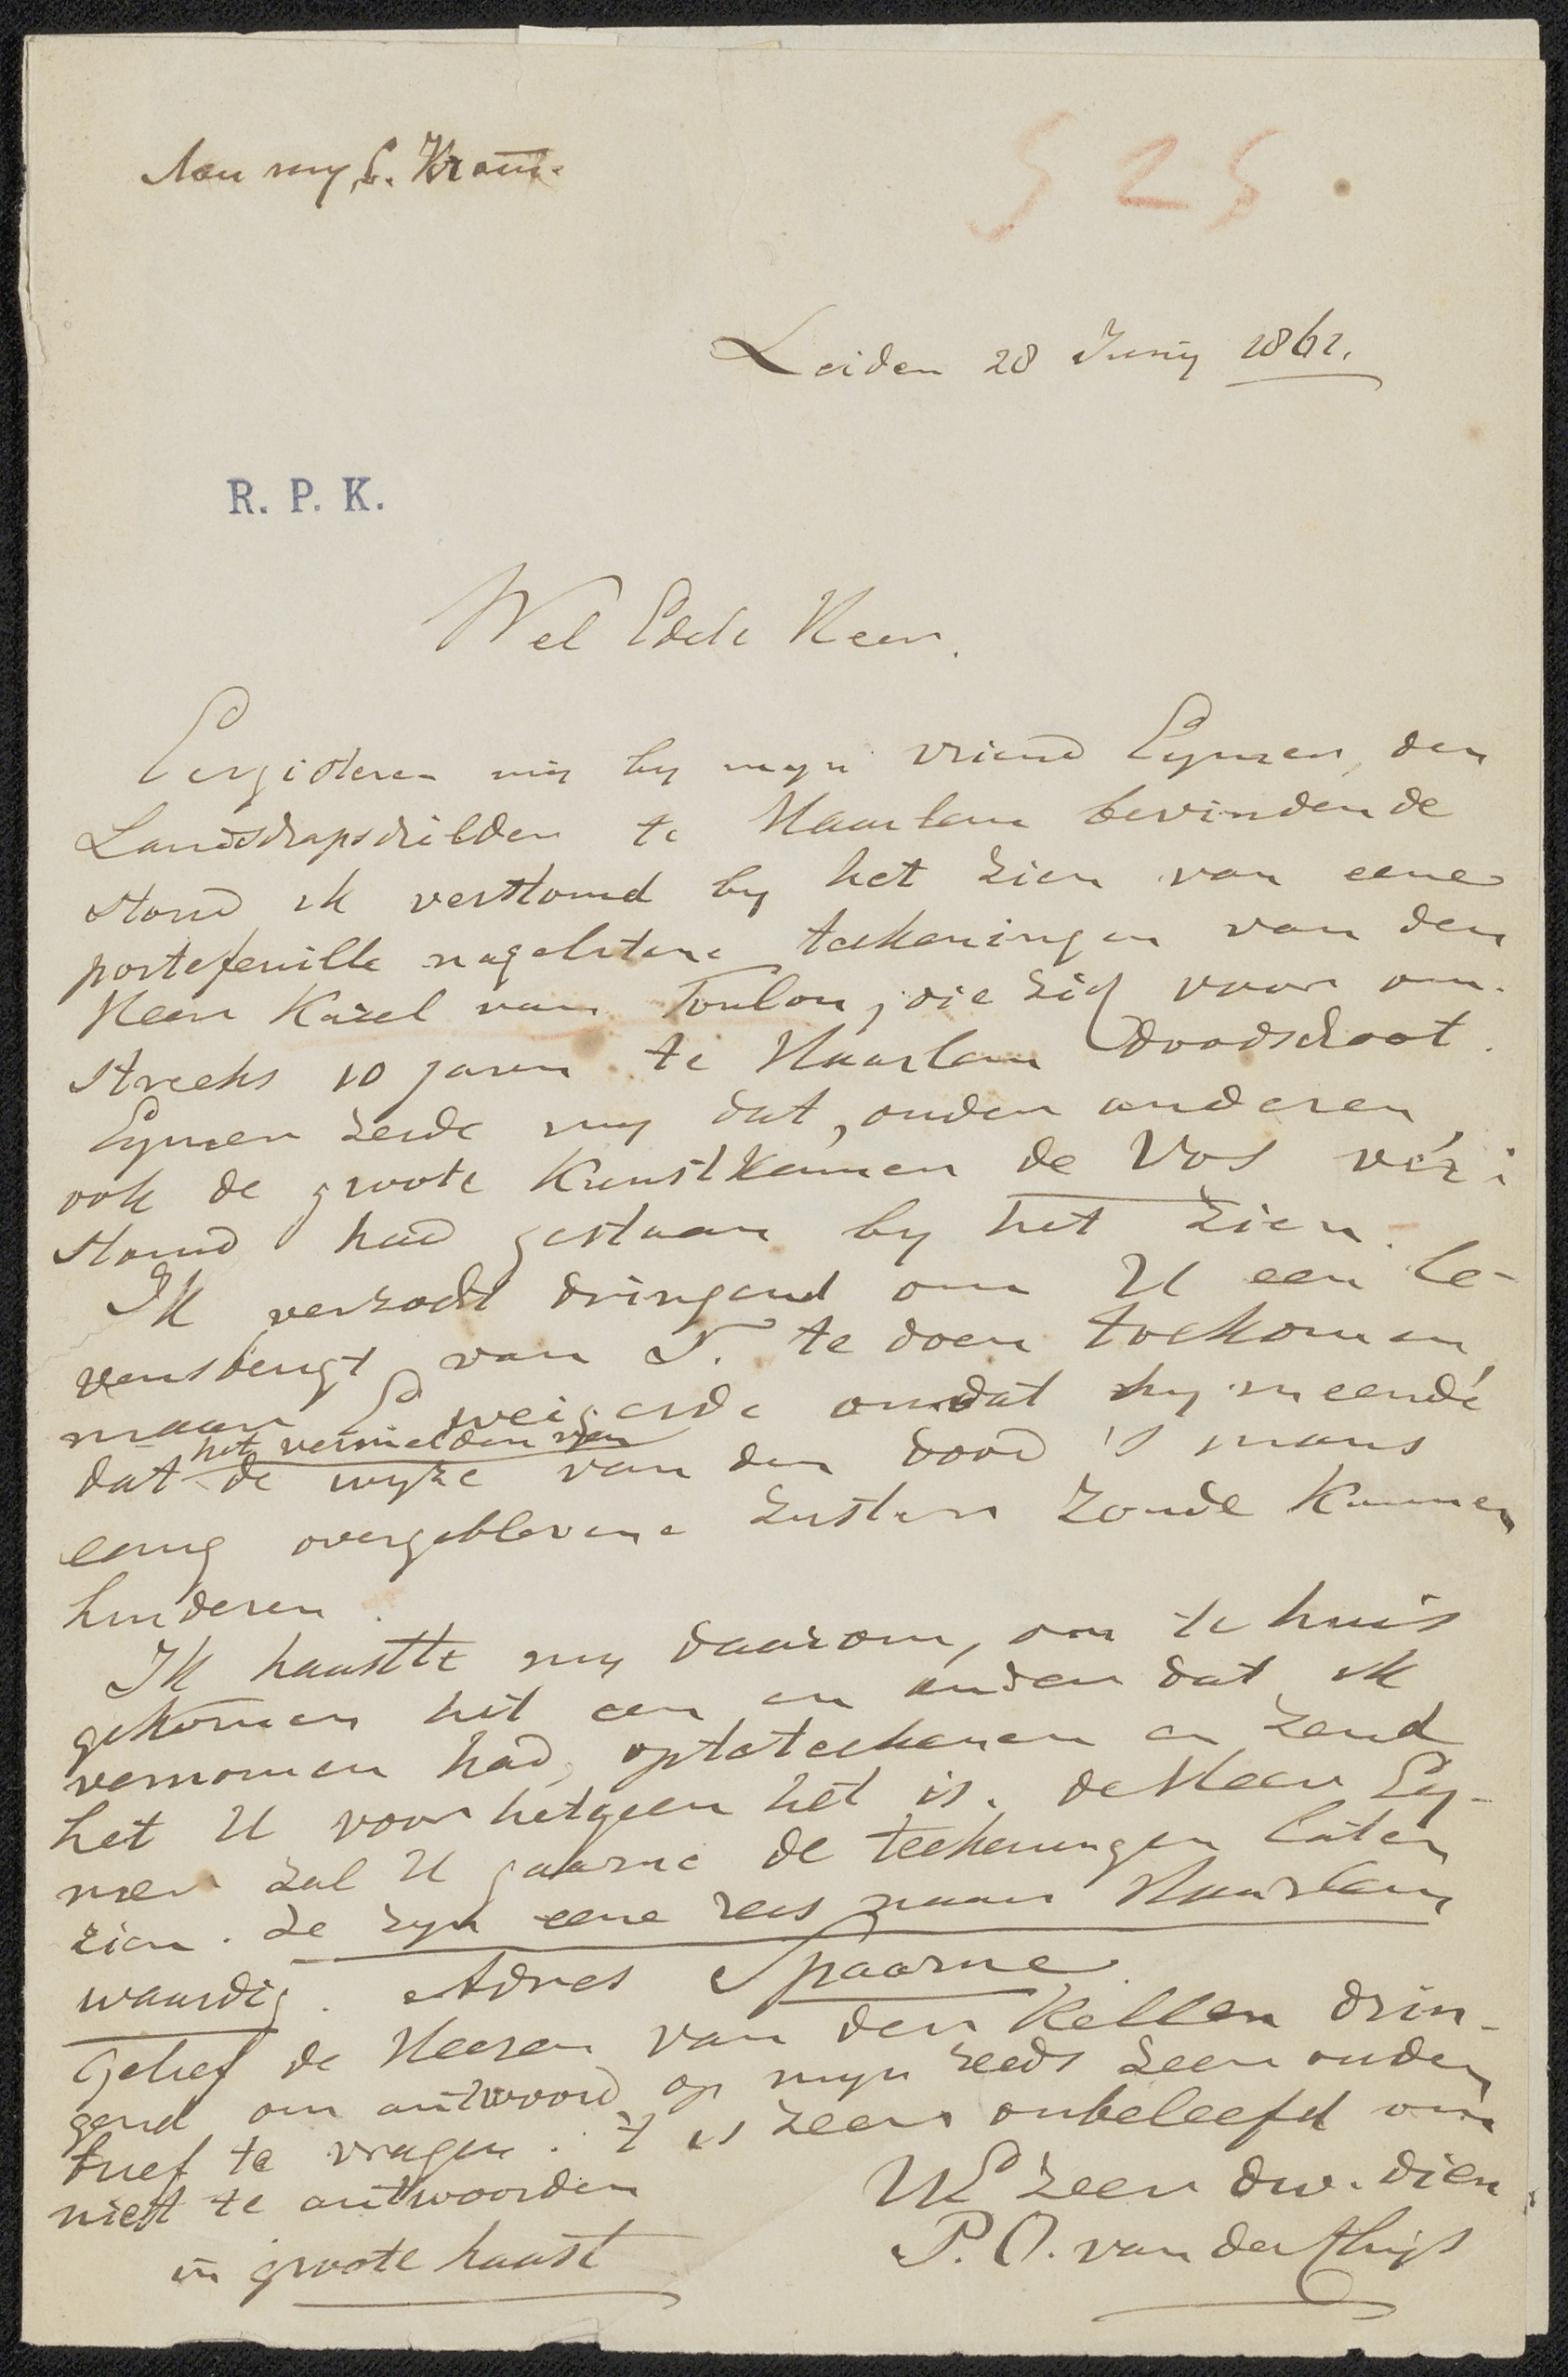 Aan my, C. Kramm.
525
Leiden 28 Junij 1862.
R. P. K.
Wel Edele Heer.
Eergisteren mij by myn vriend Eymer, den
Landschapschilder te Haarlem bevindende
stond ik verstomd by het zien van eene
portefeuille nagelatene teekeningen van den
Heer Karel van Toulon, die zich voor om-
streeks 10 jaren te Haarlem doodschoot.
Eymer zeide my dat, onder anderen,
ook de groote Kunstkenner de Vos ver
stomd had gestaan by het zien.
Ik verzocht dringend om U een le-
vensberigt van T. te doen toekomen,
maar E weigerde omdat hy meende
het vermelden van
dat de wyze van den dood 's mans
eenig overgeblevene zuster zoude kunnen
hinderen.
Ik haastte my daarom, om te huis
gekomen het een en ander dat ik
vernomen had, opteteekenen en zend
het U voor hetgeen het is. de Heer Ey-
mer zal U gaarne de teekeningen laten
zien. Ze zyn eene reis naar Haarlem
waardig. Adres Spaarne.
Gelief de Heeren van der Kellen drin-
gend om antwoord op myn reeds zeer ouden
brief te vragen. 't is zeer onbeleefd om
niet te antwoorden
UE zeer dw. dien
in groote haast
P. O. van der Chijs